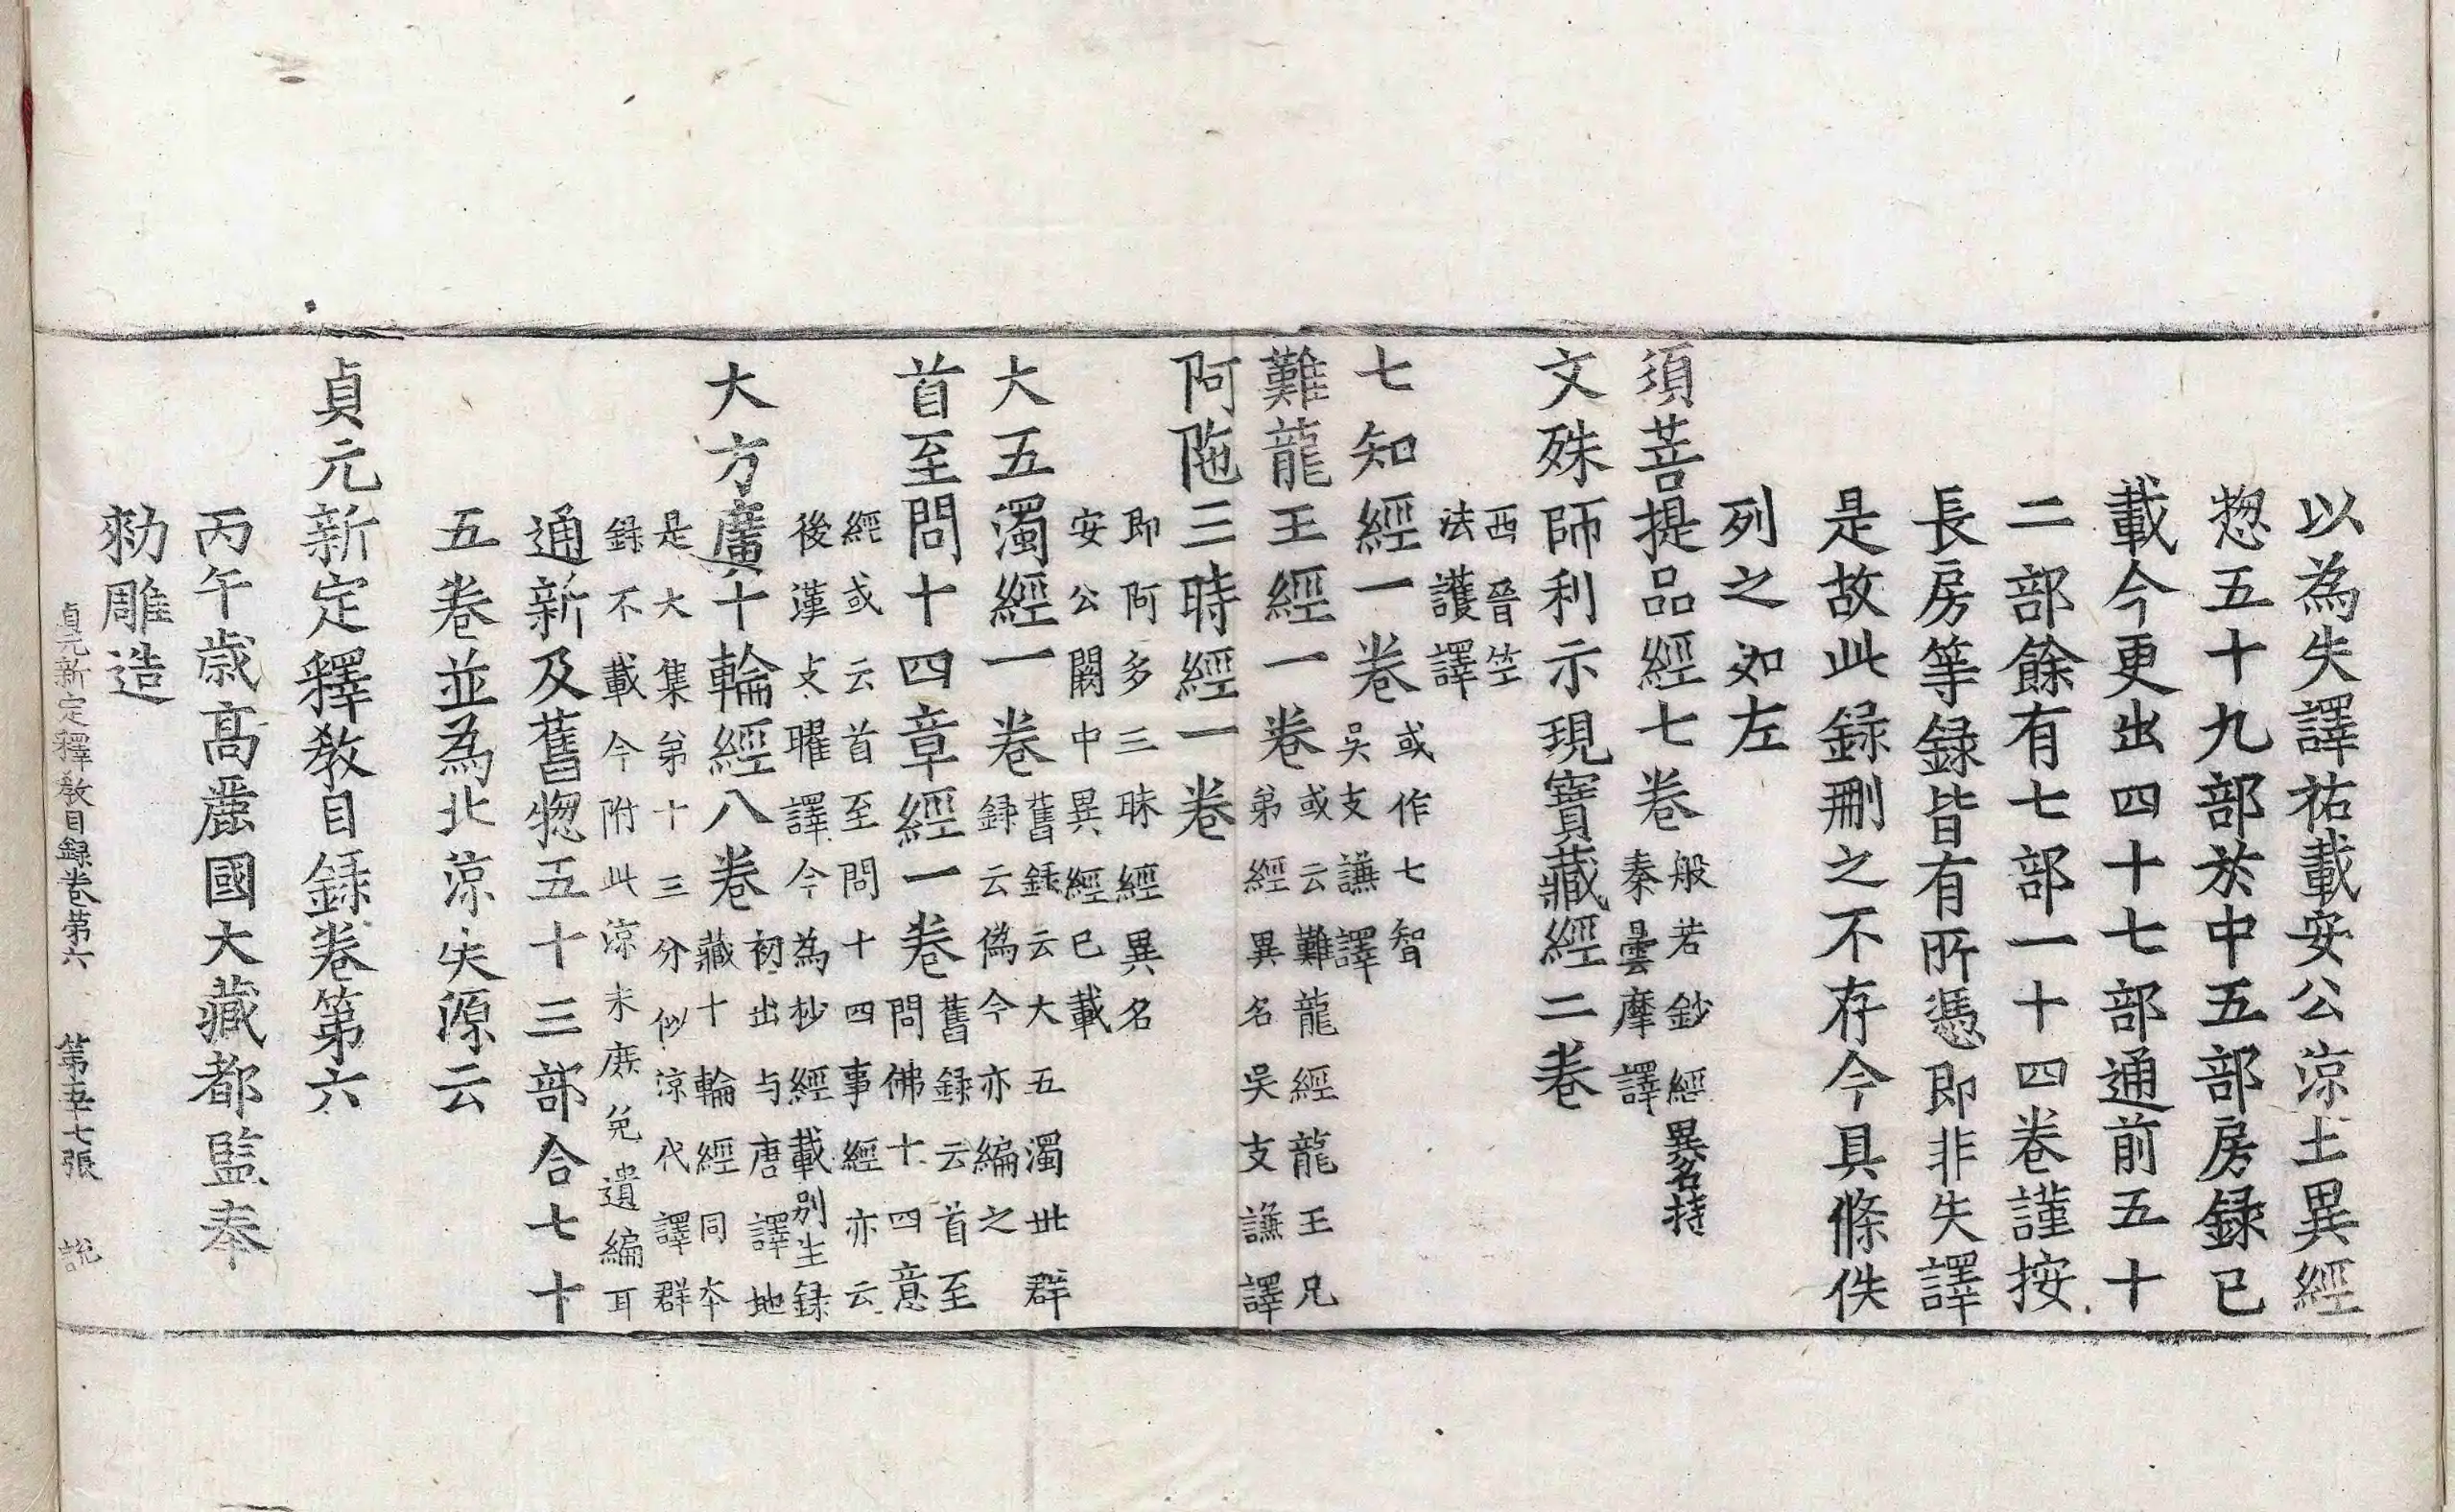 以為失譯祐載安公涼土異經
惣五十九部於中五部房録已
載今更出四十七部通前五十
二部餘有七部一十四卷謹按
長房等録皆有所憑即非失譯
是故此録刪之不存今具條佚
列之如左
須菩提品經七卷般若鈔經異名持
秦曇摩譯
文殊師利示現寶藏經二卷
西晉竺
法護譯
七知經一卷或作七智
吳支謙譯
難龍王經一卷或云難龍經龍王兄
弟經異名吳支謙譯
阿陁三時經一卷
即阿多三昧經異名
安公闕中異經已載
大五濁經一卷舊録云大五濁世群
録云偽今亦編之
首至問十四章經一卷舊録云首至
問佛十四意
經或云首至問十四事經亦云
後漢支曜譯今為抄經載別生録
大方廣十輪經八卷初出与唐譯地
藏十輪經同本
是大集第十三分似涼代譯群
録不載今附此涼末庶免遺編耳
通新及舊惣五十三部合七十
五卷並為北涼失源云
貞元新定釋教目録卷第六
丙午歳髙麗國大藏都監奉
勑雕造
貞元新定釋教目録卷第六 第五十七張 說